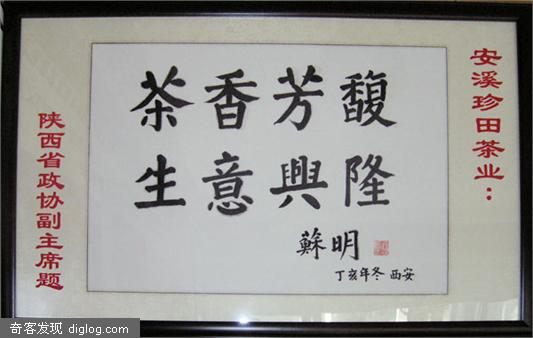 安溪珍田茶业：
茶香芳馥
生意興隆
蘇明
丁亥年冬 西安
陕西省政协副主席题
奇客发现 diglog.com